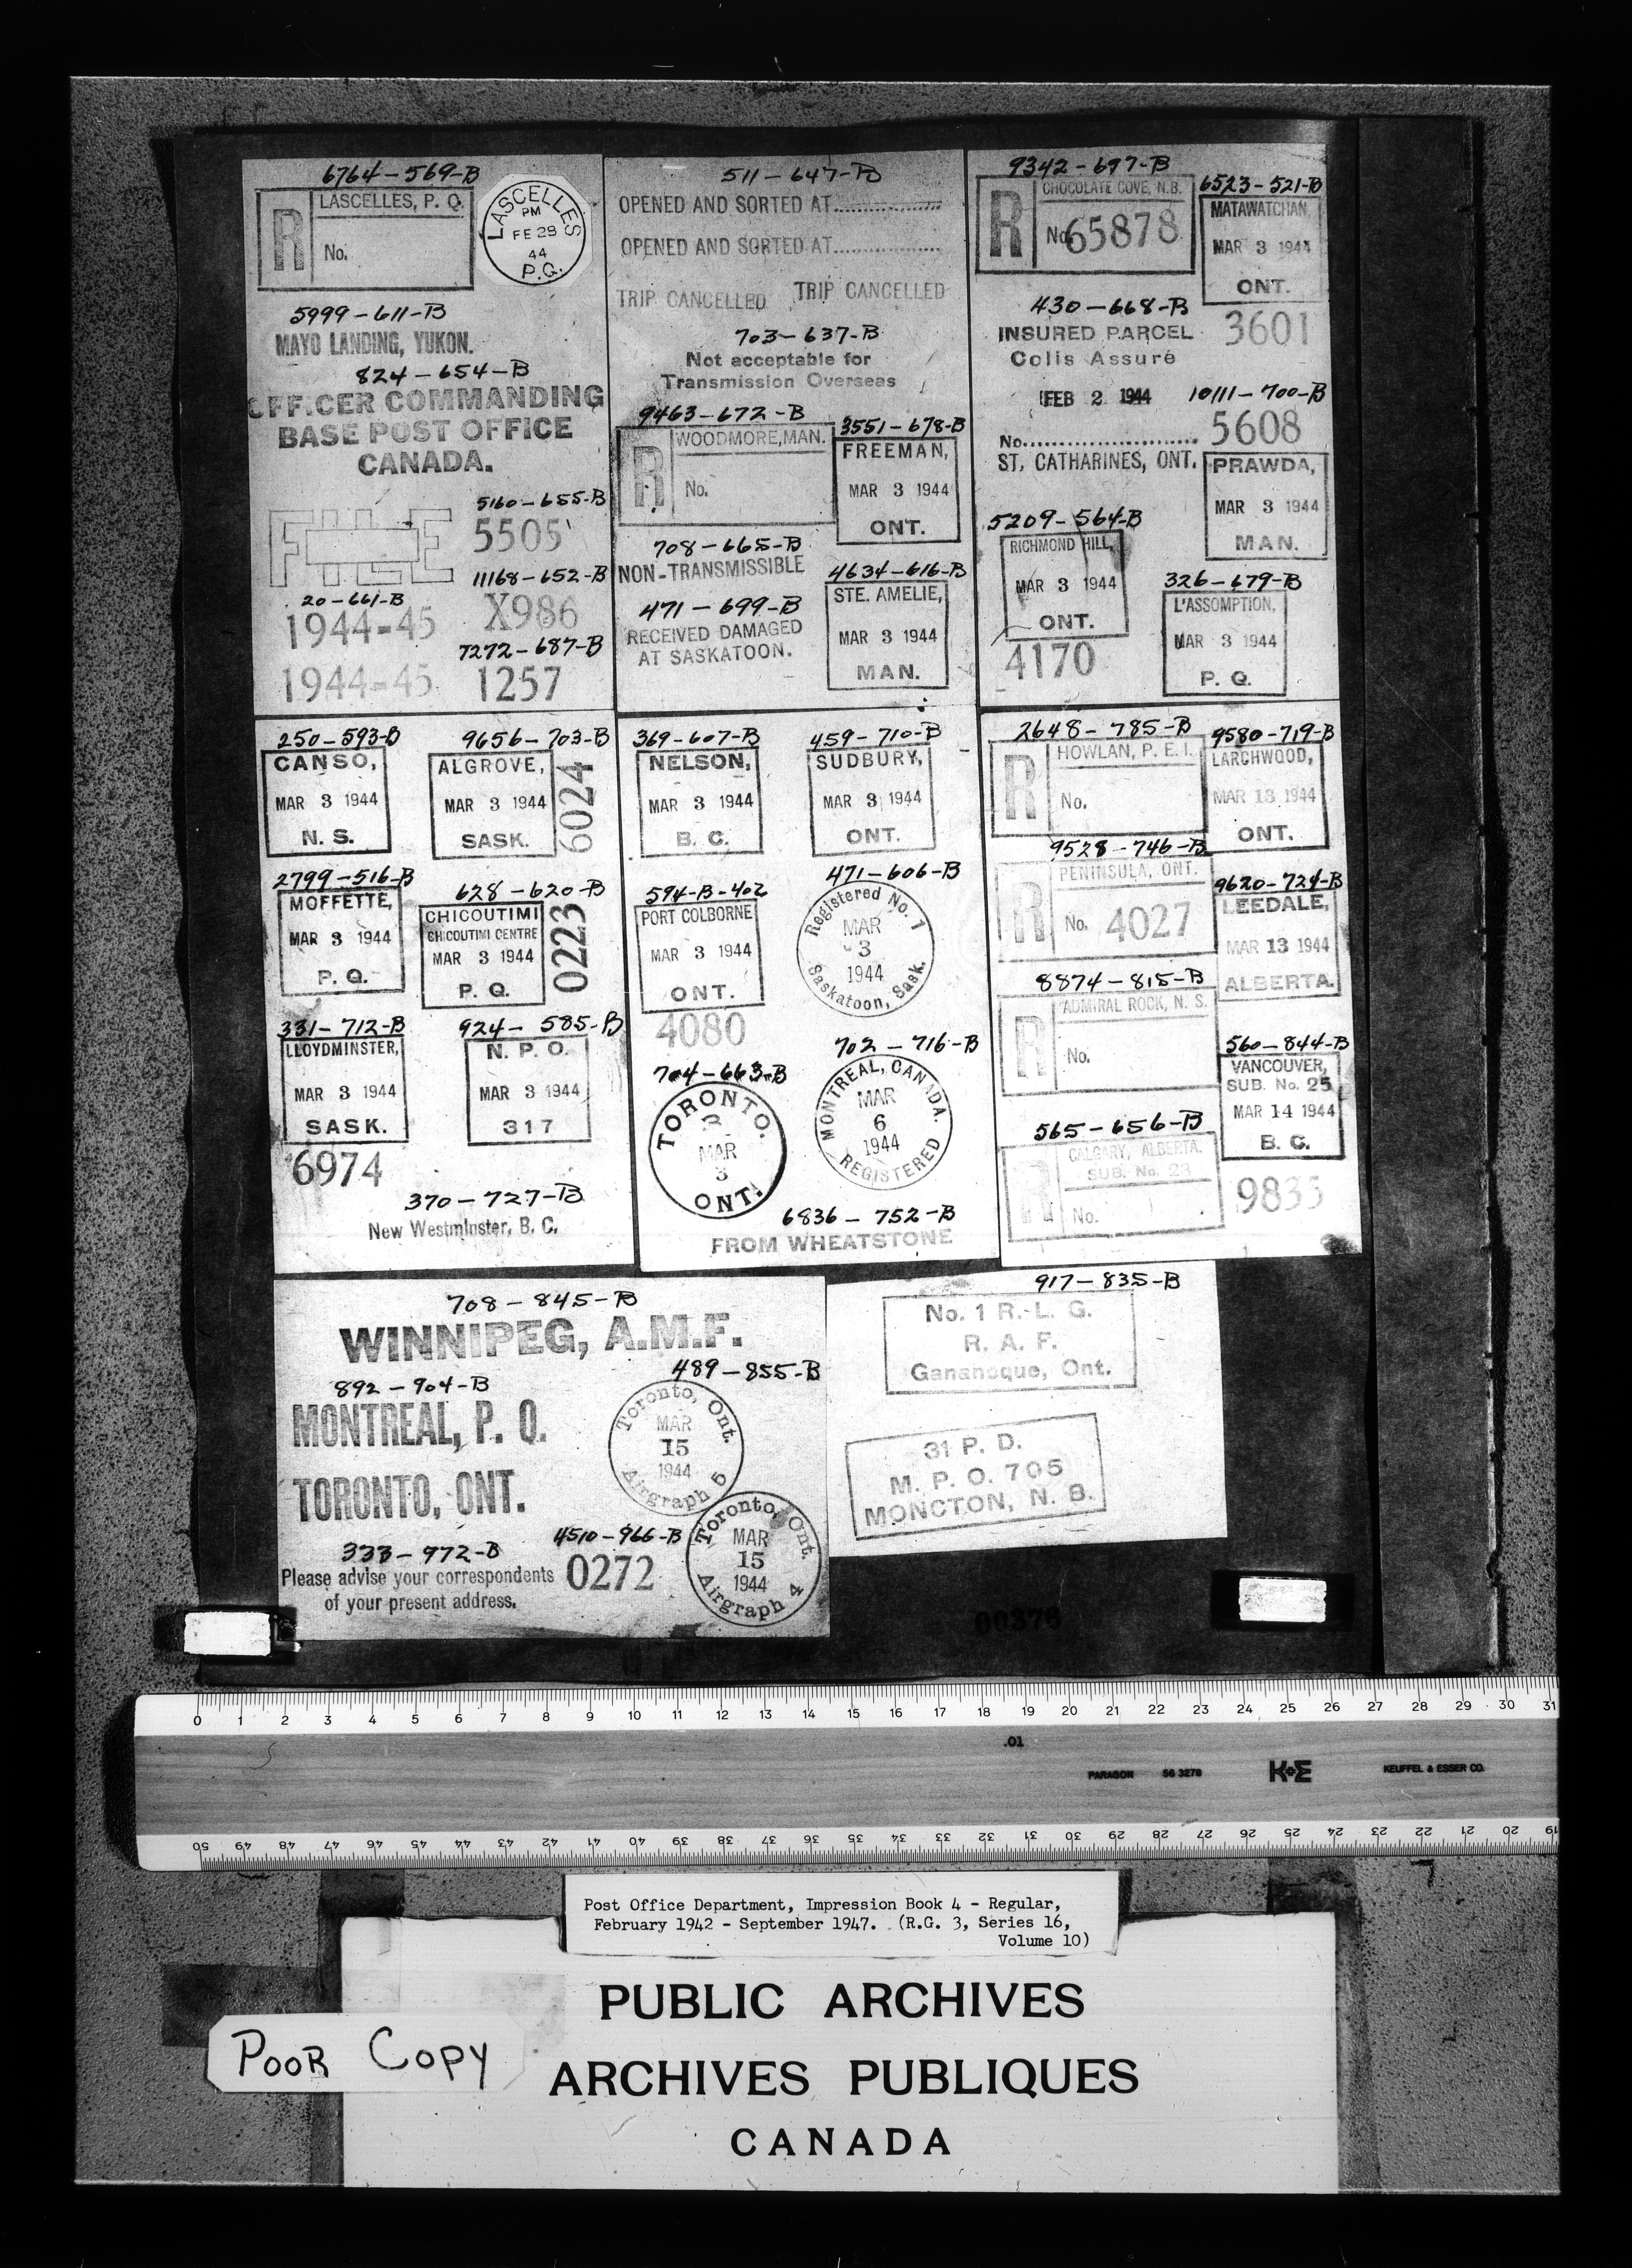 6764-569-B
R
LASCELLES, P. Q.
No.
LASCELLES
PM
FE 28
44
P.Q.
5999-611-B
MAYO LANDING, YUKON.
824-654-B
OFFICER COMMANDING
BASE POST OFFICE
CANADA.
5160-655-B
FILE
5505
11168-652-B
20-661-B
1944-45
X986
7272-687-B
1944-45
1257
511-647-B
OPENED AND SORTED AT
OPENED AND SORTED AT
TRIP CANCELLED TRIP CANCELLED
703-637-B
Not acceptable for
Transmission Overseas
9463-672-B
R
WOODMORE, MAN.
No.
3551-678-B
FREEMAN,
MAR 3 1944
ONT.
708-665-B
NON-TRANSMISSIBLE
471-699-B
RECEIVED DAMAGED
AT SASKATOON.
4634-616-B
STE. AMELIE,
MAR 3 1944
MAN.
9342-697-B
R
CHOCOLATE COVE, N.B.
No. 65878
6523-521-B
MATAWATCHAN,
MAR 3 1944
ONT.
3601
430-668-B
INSURED PARCEL
Colis Assuré
FEB 2 1944
No.
ST. CATHARINES, ONT.
10111-700-B
5608
PRAWDA,
MAR 3 1944
MAN.
5209-564-B
RICHMOND HILL,
MAR 3 1944
ONT.
4170
326-679-B
L'ASSOMPTION,
MAR 3 1944
P. Q.
250-593-B
CANSO,
MAR 3 1944
N. S.
9656-703-B
ALGROVE,
MAR 3 1944
SASK.
6024
2799-516-B
MOFFETTE,
MAR 3 1944
P. Q.
628-620-B
CHICOUTIMI
CHICOUTIMI CENTRE
MAR 3 1944
P. Q.
0223
331-712-B
LLOYDMINSTER,
MAR 3 1944
SASK.
6974
924-585-B
N. P. O.
MAR 3 1944
317
370-727-B
New Westminster, B. C.
369-607-B
NELSON,
MAR 3 1944
B. C.
459-710-B
SUDBURY,
MAR 3 1944
ONT.
594-B-402
PORT COLBORNE
MAR 3 1944
ONT.
4080
471-606-B
Registered No. 1
MAR
3
1944
Saskatoon, Sask.
704-663-B
TORONTO.
3
MAR
3
ONT.
702-716-B
MONTREAL, CANADA.
MAR
6
1944
REGISTERED
6836-752-B
FROM WHEATSTONE
2648-785-B
R
HOWLAN, P. E. I.
No.
9580-719-B
LARCHWOOD,
MAR 13 1944
ONT.
9528-746-B
R
PENINSULA, ONT.
No. 4027
9620-724-B
LEEDALE,
MAR 13 1944
ALBERTA.
8874-815-B
R
ADMIRAL ROCK, N. S.
No.
560-844-B
VANCOUVER,
SUB. No. 25
MAR 14 1944
B. C.
9833
565-656-B
R
CALGARY, ALBERTA.
SUB. No. 23
No.
708-845-B
WINNIPEG, A.M.F.
892-904-B
MONTREAL, P. Q.
TORONTO, ONT.
489-855-B
Toronto, Ont.
MAR
15
1944
Airgraph 5
333-972-B
Please advise your correspondents
of your present address.
4510-966-B
0272
Toronto, Ont.
MAR
15
1944
Airgraph 4
917-835-B
No. 1 R. L. G.
R. A. F.
Gananoque, Ont.
31 P. D.
M. P. O. 705
MONCTON, N. B.
00378
0 1 2 3 4 5 6 7 8 9 10 11 12 13 14 15 16 17 18 19 20 21 22 23 24 25 26 27 28 29 30 31
.01
PARAGON 56 3278 K+E KEUFFEL & ESSER CO.
50 49 48 47 46 45 44 43 42 41 40 39 38 37 36 35 34 33 32 31 30 29 28 27 26 25 24 23 22 21 20 19
Post Office Department, Impression Book 4 - Regular,
February 1942 - September 1947. (R.G. 3, Series 16,
Volume 10)
PUBLIC ARCHIVES
POOR COPY
ARCHIVES PUBLIQUES
CANADA